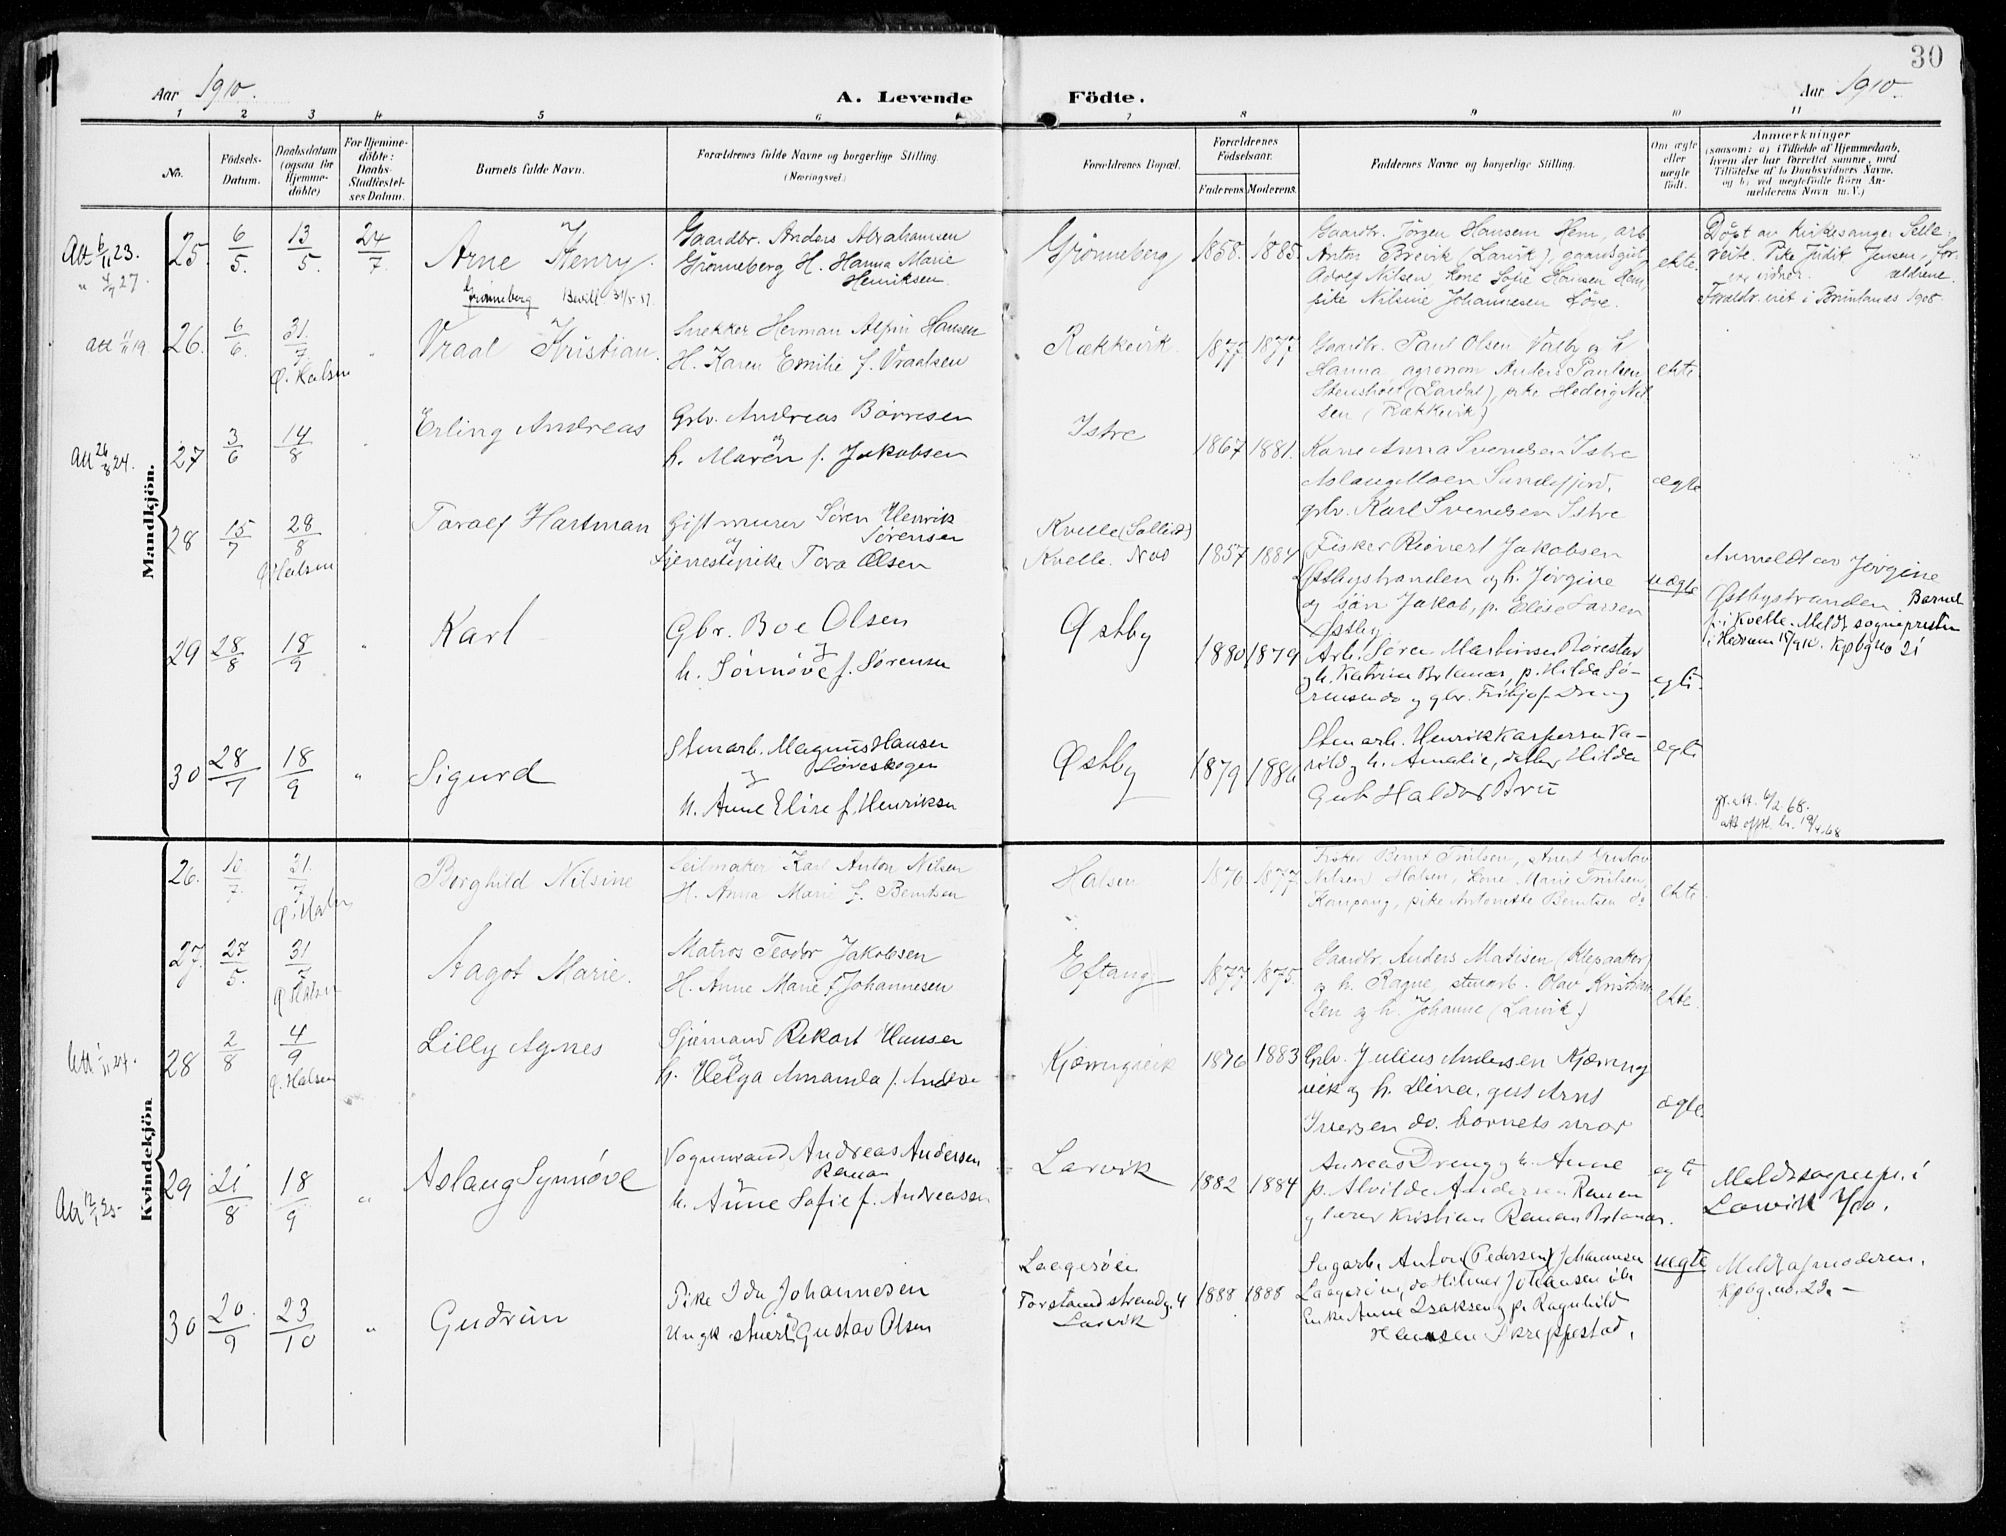 30
Aar 1910.
A. Levende
Födte.
Aar 1910.
1 2 3 4 5 6 7 8 9 10 11
No.
Födsels-
Datum.
Daabsdatum
(ogsaa for
Hjemme-
döbte)
For Hjemme-
döbte:
Daabs-
Stadfæstel-
ses Datum.
Barnets fulde Navn.
Forældrenes fulde Navne og borgerlige Stilling.
(Næringsvei.)
Forældrenes Bopæl.
Forældrenes
Födselsaar.
Faderens.
Moderens.
Faddernes Navne og borgerlige Stilling.
Om ægte
eller
uægte
født.
Anmerkninger
(saasom: a) i Tilfælde af Hjemmedaab,
hvem der har forrettet samme, med
Tilföielse af to Daabsvidners Navne,
og b, ved uegtefödte Börn An-
melderens Navn m. V.)
Mandkjön.
Att 6/11 23.
" 4/7 27.
25 6/5. 13/5. 24/7
Arne Henry.
Grönneberg Bevill. 31/5-57.
Gaardbr. Anders Abrahamsen
Grønneberg H. Hanna Marie
Henriksen.
Grønneberg
1858. 1885.
Gaardbr. Jørgen Hansen Hem, arb
Anton Brevik (Larvik), gaardsgut
Adolf Nilsen, kone Sofie Hansen Hem,
pike Nilsine Johannesen Löve.
ekte.
Døpt av kirkesanger
Pike Judit Jensen, for-
ældrene
Foreldr. viet i Brunlanes 1908.
att 11/11 19
26. 6/6. 31/7 "
Ø. Halsen
Vraal Kristian.
Snekker Herman Alfin Hansen
H. Karen Emilie f. Vraalsen
Rækkevik.
1877 1877
Gaardbr. Paul Olsen Valby og h
Hanna, agronom Anders Paulsen
Stenshölt (Lardal), pike Hedvig Nil
sen (Rækkevik)
ekte.
Att 26/8 24.
27 3/6 14/8 "
Erling Andreas
Gbr. Andreas Børresen
og
h. Maren f. Jakobsen
Istre
1867 1881.
Kone Anna Svendsen Istre
Aslaug Moen Sandefjord,
gbr. Karl Svendsen Istre
ægte
28 15/7 28/8 "
Ø Halsen
Toralf Hartman
Gift murer Søren Henrik
Sørensen
og
tjenestepike Tora Olsen
Kvelle (Sollid)
Kvelle. Nes
1857 1884
Fisker Reinert Jakobsen
Østbystranden og h. Jørgine
og søn Jakob, p. Elise Larsen
Østby
uægte
Anmeldt av Jørgine
Østbystranden. Barnet
f. i Kvelle. Meldt sogneprsten
i Hedrum 15/9 10. Kpbg no 21
29 28/8 18/9 "
Karl
Gbr. Boe Olsen
og
h. Sönnöve f. Sörensen
Østby
1880 1879
Arb. Søren Martinsen
og h. Katrine, p. Hilda Sö-
rensen do og gbr. Fritjof Dreng
egte.
30 28/7 18/9 "
Sigurd
Stenarb. Magnus Hansen
Löveskogen
og
h. Anne Elise f. Henriksen
Østby
1879 1886
Stenarb. Henrik Kaspersen Va-
og h. Amalie, datter Hilda
Gut Haldor Bru
egte
gr. att. 6/2 68.
att oppl. br. 19/4 68
Kvindekjön
26. 10/7. 31./7
Ø. Halsen
Borghild Nilsine
Seilmaker Karl Anton Nilsen
H. Anna Marie f. Berntsen
Halsen
1876 1877
Fisker Bernt Truelsen, stuert Gustav
Nilsen Halsen, kone Marie Truelsen,
Kampang, pike Antonette Berntsen do
ekte.
27. 27/5. 31/7
Ø Halsen
Aagot Marie.
Matros Teodor Jakobsen
H. Anne Marie f Johannesen
Eftang
1877 1875.
Gaardbr. Anders Matisen (Klepaaker)
og h. Ragne, stenarb. Olav Kristian
sen og h. Johanne (Larvik)
ekte.
Att 1/11 27.
28 2/8 4/9
Ø. Halsen
Lilly Agnes
Sjømand Rikart Hansen
og
h. Helga Amanda f. Andve
Kjærringvik
1876 1883
Gbr. Julius Andersen Kjærring
vik og h. Dina, gut Arnt
Iversen do. barnets mor
ægte
Att 12/1 25-
29 21/8 18/9 "
Aslaug Synnöve
Vognmand Andreas Andersen
Raman
h. Anne Sofie f. Andreassen
Larvik
1882 1884
Andreas Dreng og h. Anne
p. Alvilde Andersen Raman
og lærer Kristian Raman Brlanæs.
egte
Meldt sognepr. i
Larvik 1/10.
30 20./9 23/10 "
Gudrun
Pike Ida Johannesen
Ungk. stuert Gustav Olsen
Laagerøen
Torstrandstrandg. 4
Larvik
1888 1888
Sagarb. Anton (Pedersen) Johannsen
Laagerøen, do Hilmer Johansen ibi
Enke Anne Isaksen og p. Ragnhild
Hansen Skreppestad.
uegte
Meldt af moderen.
Kpbg. no. 22. -